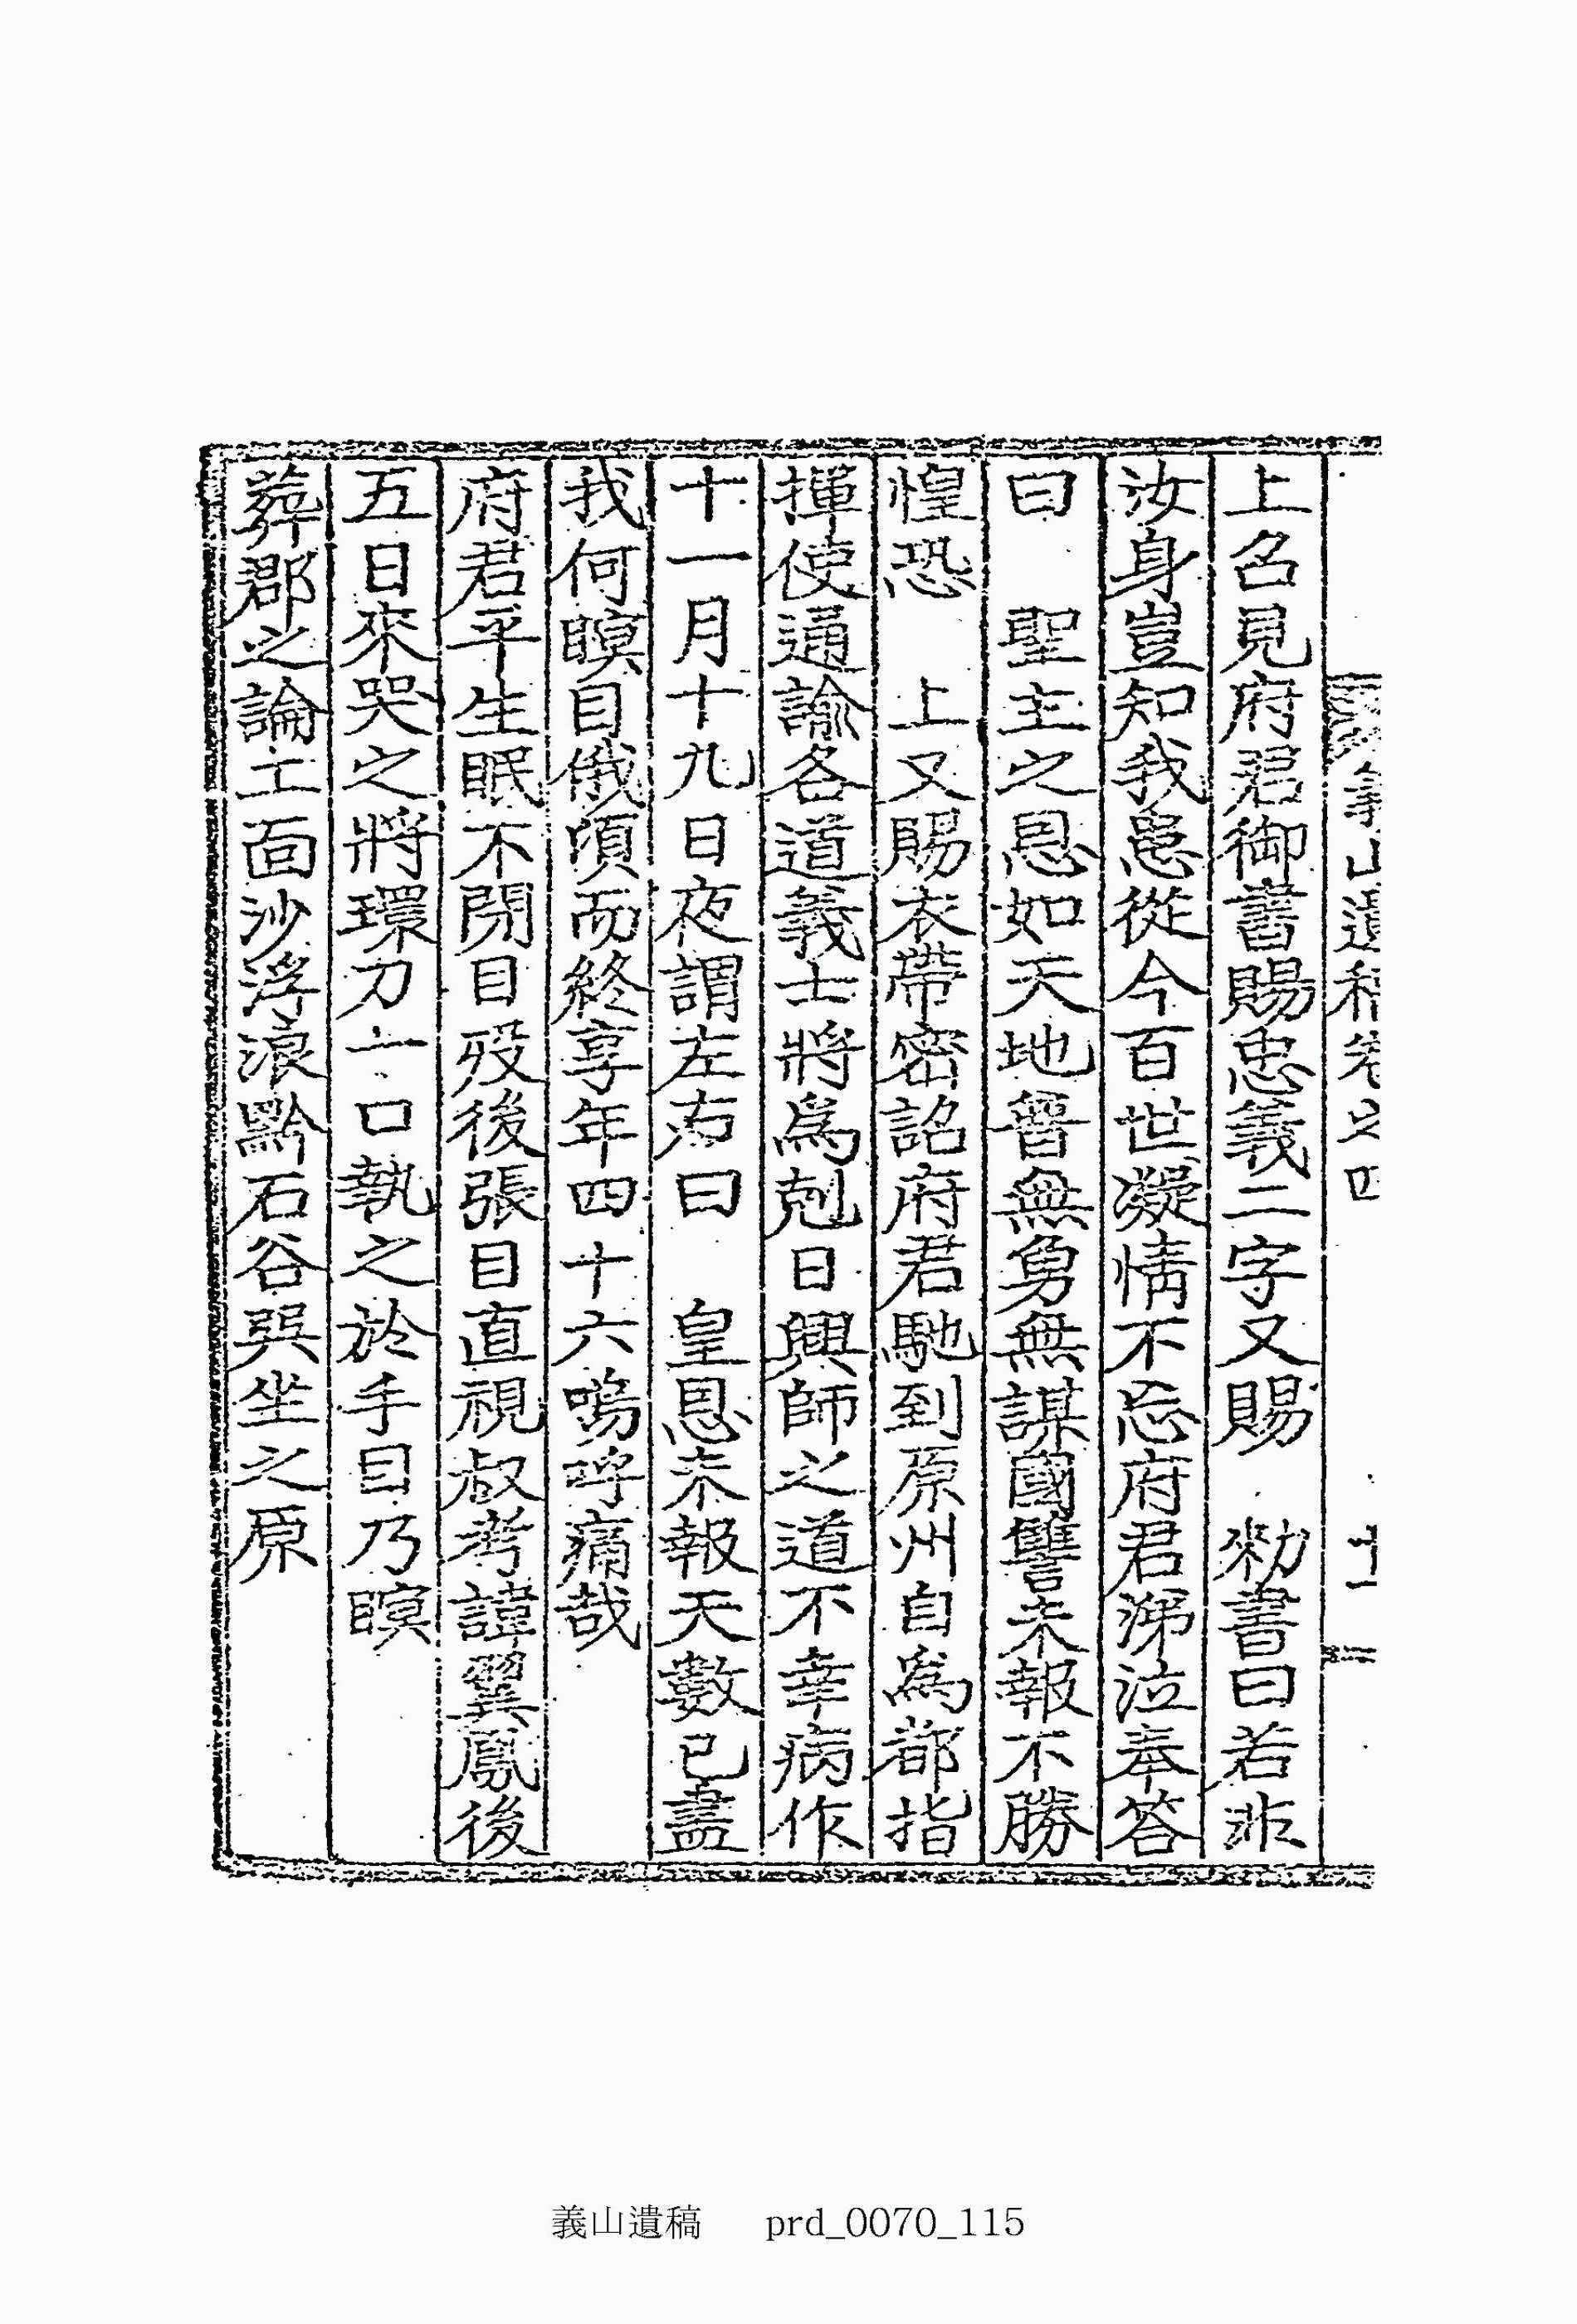 義山遺稿卷之四 十一
上召見府君御書賜忠義二字又賜 勑書曰若非
汝身豈知我慮從今百世凝情不忘府君涕泣奉答
曰 聖主之恩如天地晉無勇無謀國讐未報不勝
惶恐 上又賜衣帶密詔府君馳到原州自爲都指
揮使通諭各道義士將爲剋日興師之道不幸病作
十一月十九日夜謂左右曰 皇恩未報天數已盡
我何瞑目俄頃而終享年四十六嗚呼痛哉
府君平生眠不閉目歿後張目直視叔考諱翼鳳後
五日來哭之將環刀一口執之於手目乃瞑
葬郡之論工面沙浮浪黔石谷巽坐之原
義山遺稿 prd_0070_115